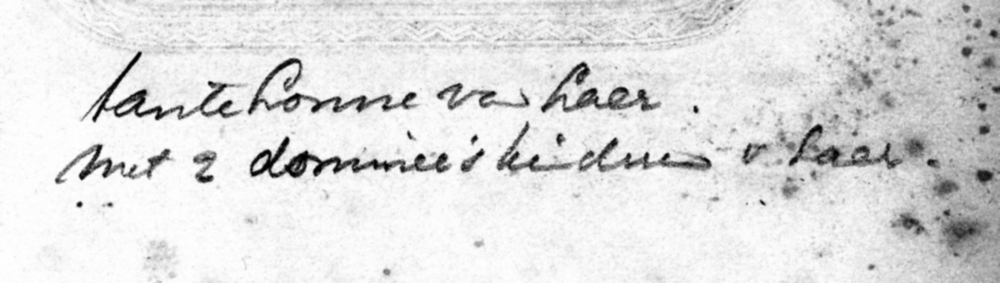 tante Lonne van Laer.
met 2 dominee's kinderen v Laer.